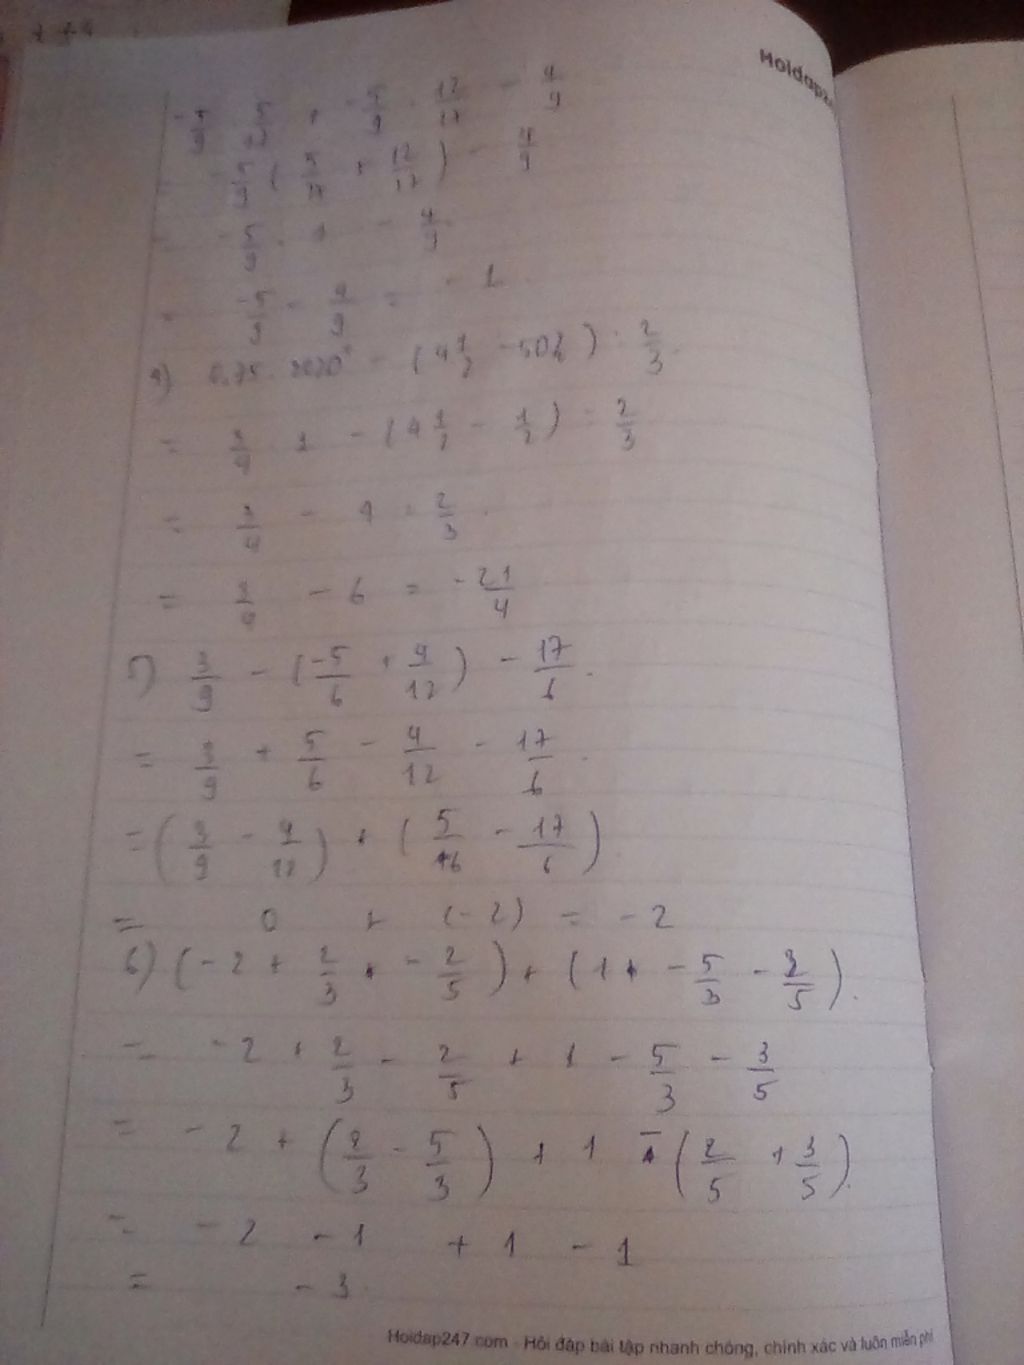 Hoidap2
-5/9 . 5/17 + -5/9 . 12/17 - 4/9
= -5/9 (5/17 + 12/17) - 4/9
= -5/9 . 1 - 4/9
= -5/9 - 4/9 = -1
4) 0,75 . 2020° - (4 1/2 - 50%) : 2/3.
= 3/4 . 1 - (4 1/2 - 1/2) : 2/3
= 3/4 - 4 : 2/3.
= 3/4 - 6 = -21/4
5) 3/9 - (-5/6 + 4/12) - 17/6.
= 3/9 + 5/6 - 4/12 - 17/6.
= (3/9 - 4/12) + (5/6 - 17/6)
= 0 + (-2) = -2
6) (-2 + 2/3 + -2/5) + (1 + -5/3 - 3/5).
= -2 + 2/3 - 2/5 + 1 - 5/3 - 3/5
= -2 + (2/3 - 5/3) + 1 - (2/5 + 3/5).
= -2 - 1 + 1 - 1
= -3.
Hoidap247.com - Hỏi đáp bài tập nhanh chóng, chính xác và luôn miễn phí